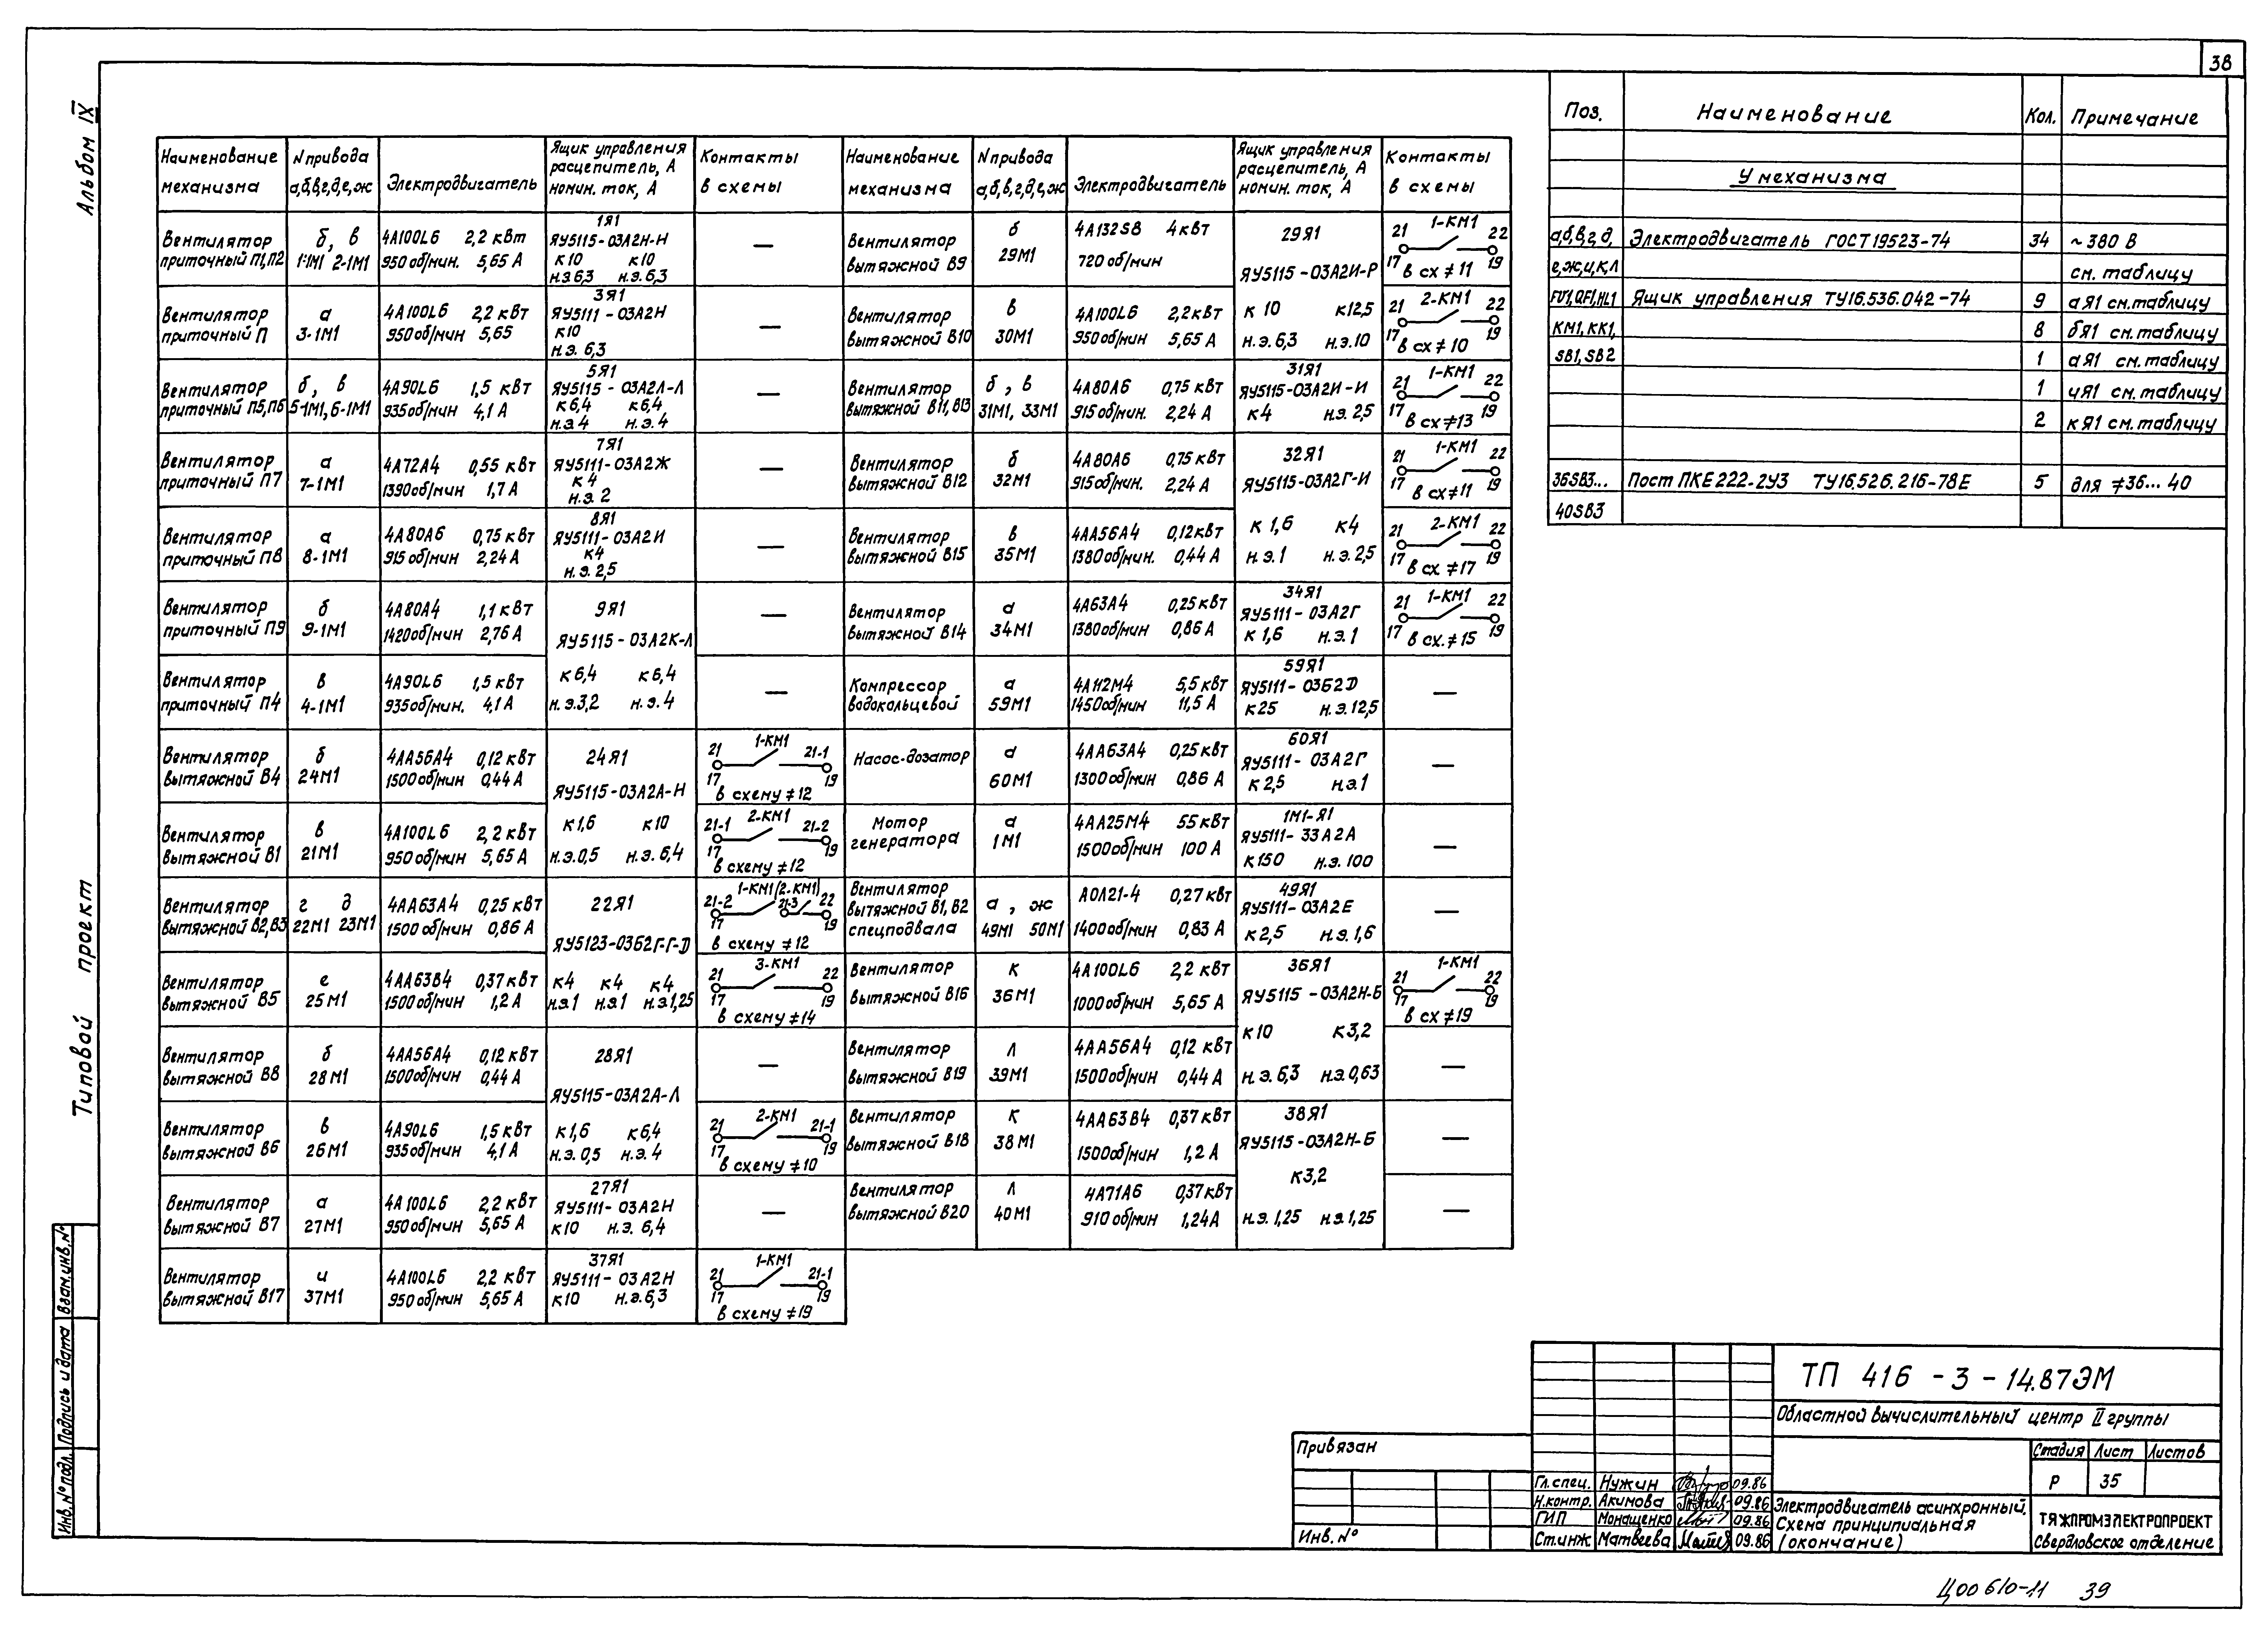 38
Альбом IX
Типовой проект
Наименование механизма | N привода а,б,в,г,д,е,ж | Электродвигатель | Ящик управления расцепитель, А номин. ток, А | Контакты в схемы
Вентилятор приточный П1,П2 | б, в 1-1М1 2-1М1 | 4А100L6 2,2 кВт 950 об/мин. 5,65 А | 1Я1 ЯУ5115-03А2Н-Н к10 к10 н.э.6,3 н.э.6,3 | —
Вентилятор приточный П | а 3-1М1 | 4А100L6 2,2 кВт 950 об/мин 5,65 | 3Я1 ЯУ5111-03А2Н к10 н.э. 6,3 | —
Вентилятор приточный П5,П6 | б, в 5-1М1, 6-1М1 | 4А90L6 1,5 кВт 935 об/мин 4,1 А | 5Я1 ЯУ5115-03А2Л-Л к6,4 к6,4 н.э.4 н.э.4 | —
Вентилятор приточный П7 | а 7-1М1 | 4А72А4 0,55 кВт 1390 об/мин 1,7 А | 7Я1 ЯУ5111-03А2Ж к4 н.э. 2 | —
Вентилятор приточный П8 | а 8-1М1 | 4А80А6 0,75 кВт 915 об/мин 2,24 А | 8Я1 ЯУ5111-03А2И к4 н.э. 2,5 | —
Вентилятор приточный П9 | б 9-1М1 | 4А80А4 1,1 кВт 1420 об/мин 2,76 А | 9Я1 ЯУ5115-03А2К-Л | —
Вентилятор приточный П4 | в 4-1М1 | 4А90L6 1,5 кВт 935 об/мин. 4,1 А | к6,4 к6,4 н.э.3,2 н.э.4 | —
Вентилятор вытяжной В4 | б 24М1 | 4АА56А4 0,12 кВт 1500 об/мин 0,44 А | 24Я1 ЯУ5115-03А2А-Н | 21 1-КМ1 21-1 17 19 в схему ≠12
Вентилятор вытяжной В1 | в 21М1 | 4А100L6 2,2 кВт 950 об/мин 5,65 А | к1,6 к10 н.э.0,5 н.э. 6,4 | 21-1 2-КМ1 21-2 17 19 в схему ≠12
Вентилятор вытяжной В2,В3 | г д 22М1 23М1 | 4АА63А4 0,25 кВт 1500 об/мин 0,86 А | 22Я1 ЯУ5123-03Б2Г-Г-D | 1-КМ1(2-КМ1) 21-2 21-3 22 17 19 в схему ≠12
Вентилятор вытяжной В5 | е 25М1 | 4АА63В4 0,37 кВт 1500 об/мин 1,2 А | к4 к4 к4 н.э.1 н.э.1 н.э.1,25 | 21 3-КМ1 22 17 19 в схему ≠14
Вентилятор вытяжной В8 | б 28М1 | 4АА56А4 0,12 кВт 1500 об/мин 0,44 А | 28Я1 ЯУ5115-03А2А-Л | —
Вентилятор вытяжной В6 | в 26М1 | 4А90L6 1,5 кВт 935 об/мин 4,1 А | к1,6 к6,4 н.э. 0,5 н.э. 4 | 21 2-КМ1 21-1 17 19 в схему ≠10
Вентилятор вытяжной В7 | а 27М1 | 4А100L6 2,2 кВт 950 об/мин 5,65 А | 27Я1 ЯУ5111-03А2Н к10 н.э. 6,4 | —
Вентилятор вытяжной В17 | и 37М1 | 4А100L6 2,2 кВт 950 об/мин 5,65 А | 37Я1 ЯУ5111-03А2Н к10 н.э.6,3 | 21 1-КМ1 21-1 17 19 в схему ≠19
Наименование механизма | N привода а,б,в,г,д,е,ж | Электродвигатель | Ящик управления расцепитель, А номин. ток, А | Контакты в схемы
Вентилятор вытяжной В9 | б 29М1 | 4А132S8 4 кВт 720 об/мин | 29Я1 ЯУ5115-03А2И-Р | 21 1-КМ1 22 17 19 в сх ≠11
Вентилятор вытяжной В10 | в 30М1 | 4А100L6 2,2 кВт 950 об/мин 5,65 А | к 10 к12,5 н.э. 6,3 н.э.10 | 21 2-КМ1 22 17 19 в сх ≠10
Вентилятор вытяжной В11, В13 | б, в 31М1, 33М1 | 4А80А6 0,75 кВт 915 об/мин. 2,24 А | 31Я1 ЯУ5115-03А2И-И к4 н.э. 2,5 | 21 1-КМ1 22 17 19 в сх ≠13
Вентилятор вытяжной В12 | б 32М1 | 4А80А6 0,75 кВт 915 об/мин. 2,24 А | 32Я1 ЯУ5115-03А2Г-И | 21 1-КМ1 22 17 19 в сх ≠11
Вентилятор вытяжной В15 | в 35М1 | 4АА56А4 0,12 кВт 1380 об/мин. 0,44 А | к 1,6 к4 н.э.1 н.э. 2,5 | 21 2-КМ1 22 17 19 в сх. ≠17
Вентилятор вытяжной В14 | а 34М1 | 4А63А4 0,25 кВт 1380 об/мин 0,86 А | 34Я1 ЯУ5111-03А2Г к 1,6 н.э.1 | 21 1-КМ1 22 17 19 в сх. ≠15
Компрессор водокольцевой | а 59М1 | 4А112М4 5,5 кВт 1450 об/мин 11,5 А | 59Я1 ЯУ5111-03Б2D к25 н.э.12,5 | —
Насос-дозатор | а 60М1 | 4АА63А4 0,25 кВт 1300 об/мин 0,86 А | 60Я1 ЯУ5111-03А2Г к 2,5 н.э.1 | —
Мотор генератора | а 1М1 | 4АА25М4 55 кВт 1500 об/мин 100 А | 1М1-Я1 ЯУ5111-33А2А к150 н.э. 100 | —
Вентилятор вытяжной В1, В2 спецподвала | а, ж 49М1 50М1 | АОЛ21-4 0,27 кВт 1400 об/мин 0,83 А | 49Я1 ЯУ5111-03А2Е к 2,5 н.э. 1,6 | —
Вентилятор вытяжной В16 | к 36М1 | 4А100L6 2,2 кВт 1000 об/мин 5,65 А | 36Я1 ЯУ5115-03А2Н-Б | 21 1-КМ1 22 17 19 в сх ≠19
Вентилятор вытяжной В19 | л 39М1 | 4АА56А4 0,12 кВт 1500 об/мин 0,44 А | к10 к3,2 н.э. 6,3 н.э.0,63 | —
Вентилятор вытяжной В18 | к 38М1 | 4АА63В4 0,37 кВт 1500 об/мин 1,2 А | 38Я1 ЯУ5115-03А2Н-Б | —
Вентилятор вытяжной В20 | л 40М1 | 4А71А6 0,37 кВт 910 об/мин 1,24 А | к3,2 н.э. 1,25 н.э.1,25 | —
Поз. | Наименование | Кол. | Примечание
У механизма
а,б,в,г,д, | Электродвигатель ГОСТ 19523-74 | 34 | ~380 В
е,ж,и,к,л | см. таблицу
FU1, QF1, HL1 | Ящик управления ТУ16.536.042-74 | 9 | аЯ1 см. таблицу
КМ1, КК1, | 8 | бЯ1 см. таблицу
SB1, SB2 | 1 | аЯ1 см. таблицу
1 | иЯ1 см. таблицу
2 | кЯ1 см. таблицу
36SB3... | Пост ПКЕ 222-2У3 ТУ16.526.216-78Е | 5 | для ≠36... 40
40SB3
Взам. инв. №
Подпись и дата
Инв. № подл.
Привязан
Инв. №
ТП 416-3-14.87ЭМ
Областной вычислительный центр II группы
Стадия | Лист | Листов
Р | 35
Гл. спец. Нужин 09.86
Н. контр. Акимова 09.86
ГИП Монащенко 09.86
Ст. инж Матвеева 09.86
Электродвигатель асинхронный.
Схема принципиальная
(окончание)
ТЯЖПРОМЭЛЕКТРОПРОЕКТ
Свердловское отделение
Ц00610-11 39